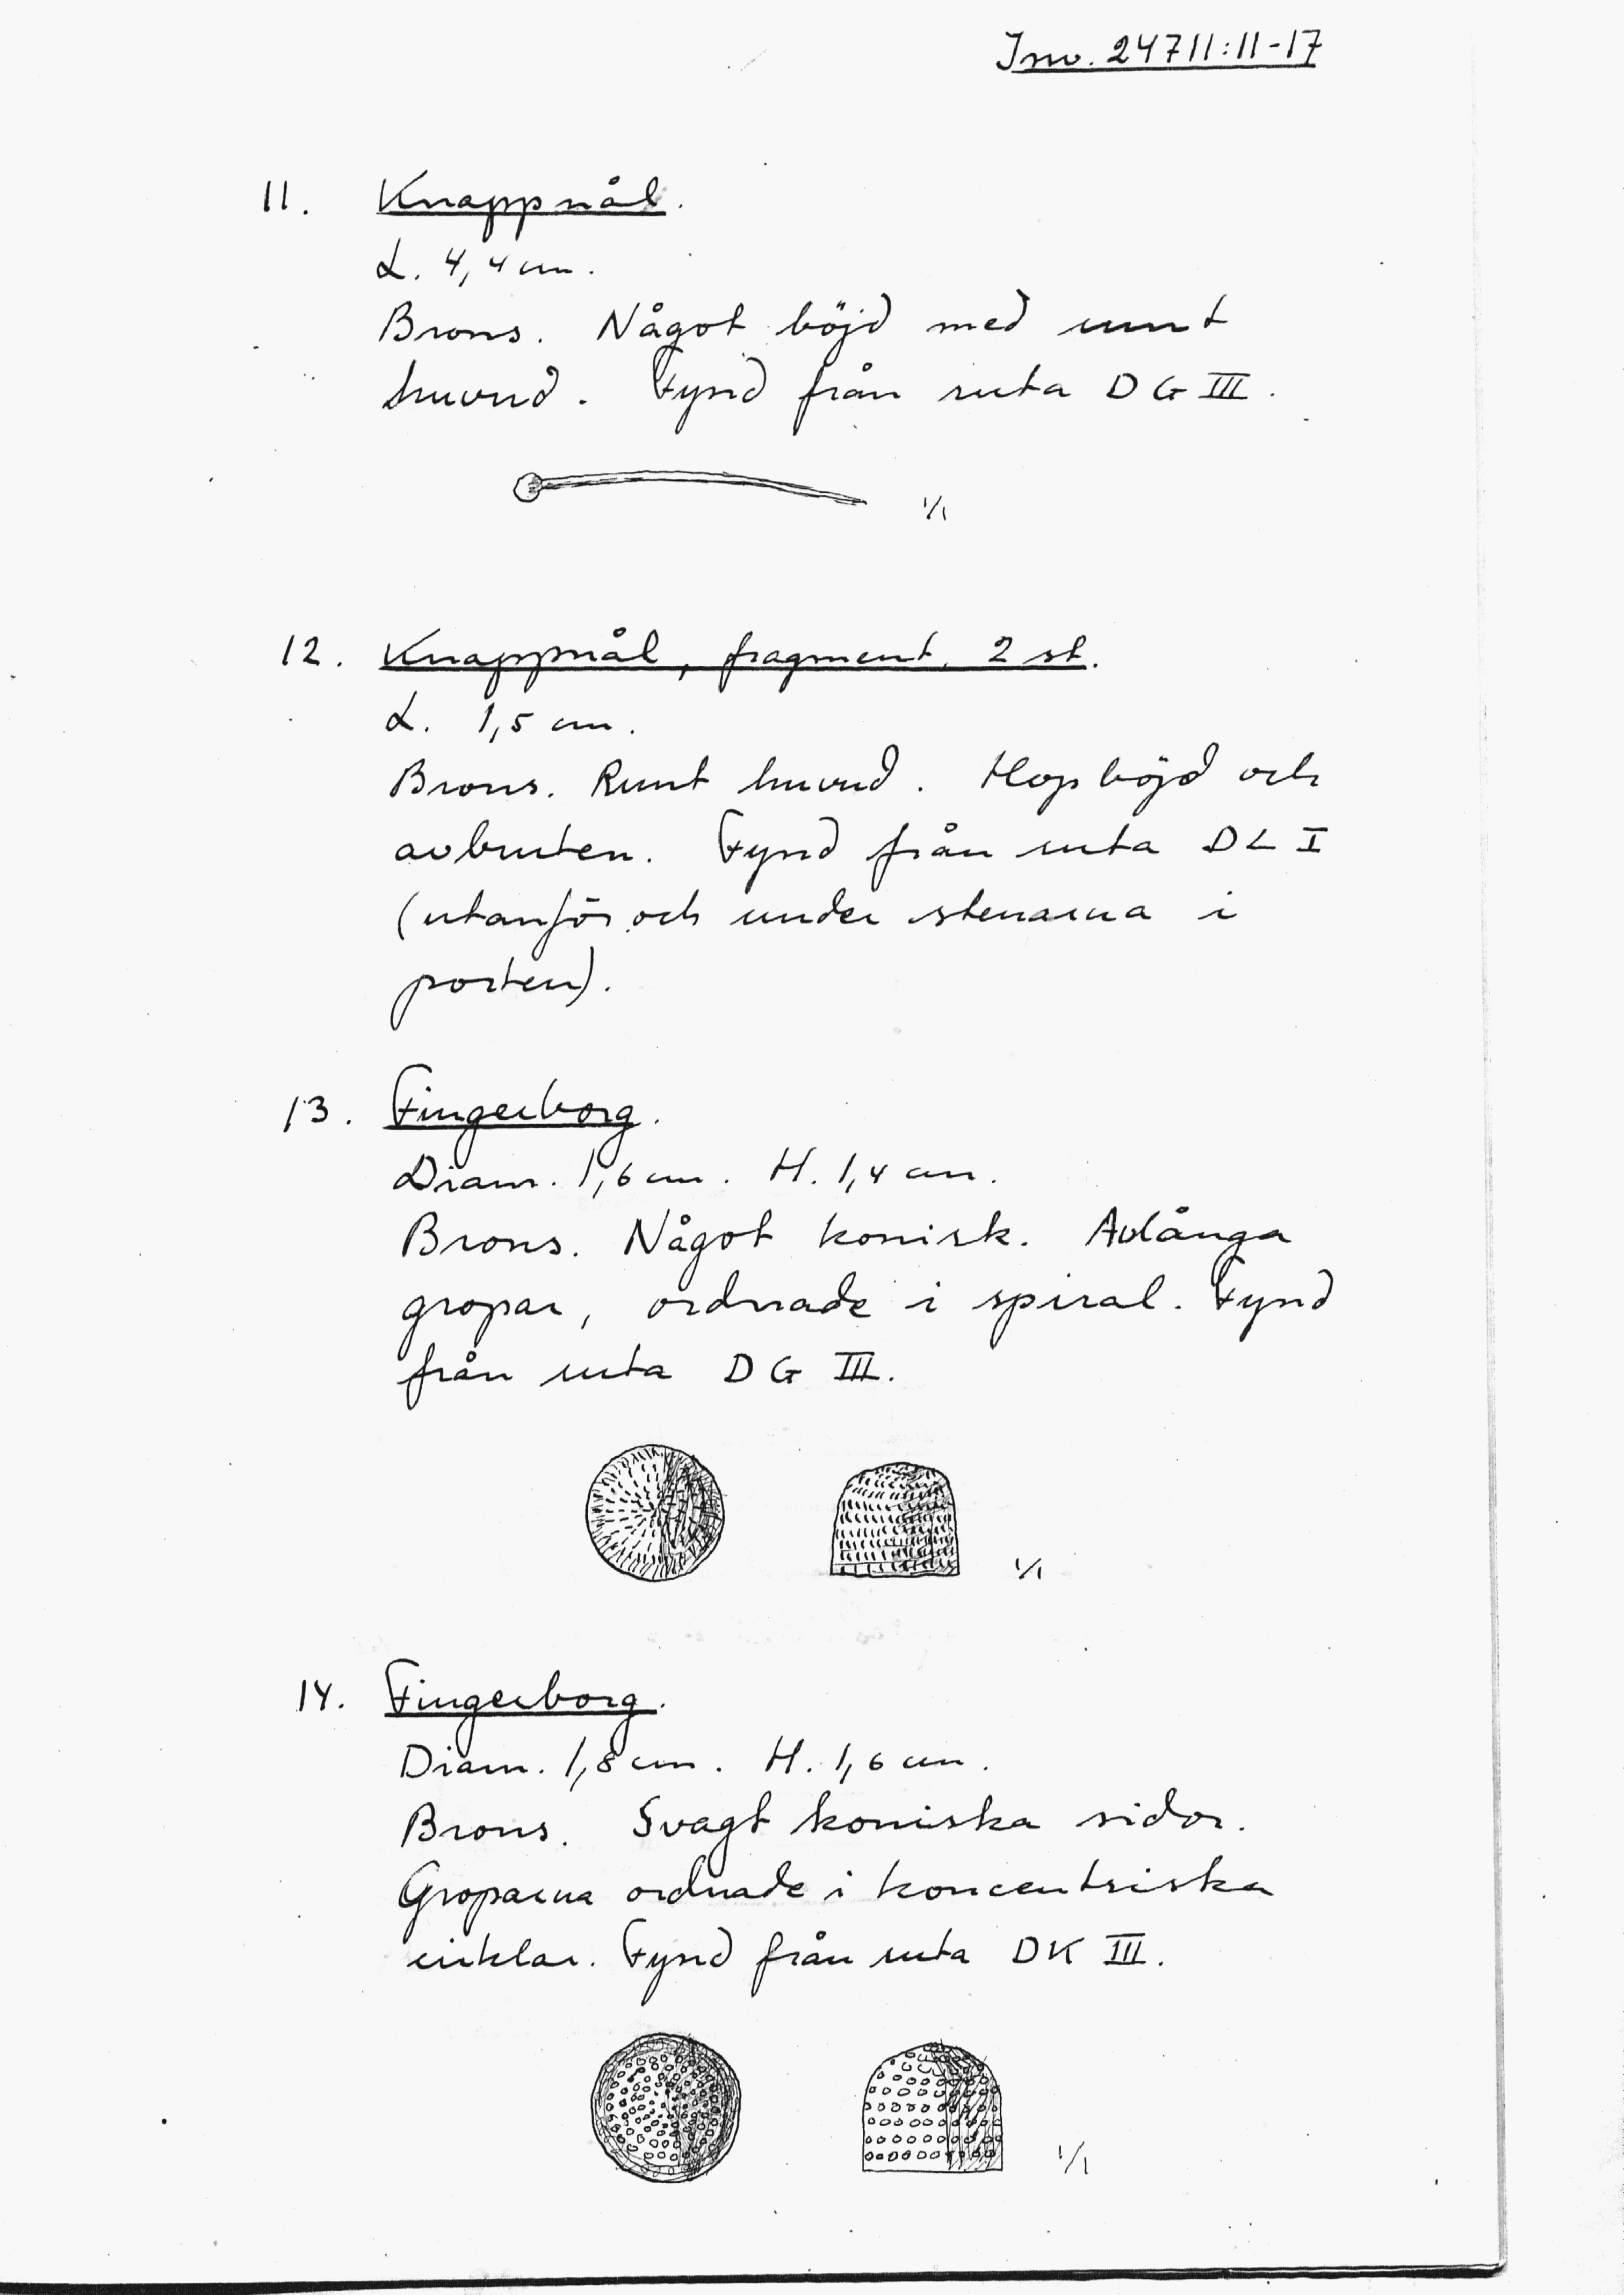 Inv. 24711:11-17
11. Knappnål.
L. 4,4 cm.
Brons. Något böjd med runt
huvud. Fynd från ruta DG III.
1/1
12. Knappnål, fragment. 2 st.
L. 1,5 cm.
Brons. Runt huvud. Hopböjd och
avbruten. Fynd från ruta DL I
(utanför och under stenarna i
porten).
13. Fingerborg.
Diam. 1,6 cm. H. 1,4 cm.
Brons. Något konisk. Avlånga
gropar, ordnade i spiral. Fynd
från ruta DG III.
1/1
14. Fingerborg.
Diam. 1,8 cm. H. 1,6 cm.
Brons. Svagt koniska sidor.
Groparna ordnade i koncentriska
cirklar. Fynd från ruta DK III.
1/1